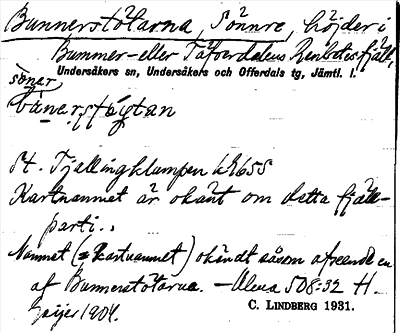 Bunnerstötarna, Sönnre, höjder i
Bummer- eller Täfverdalens Renbetesfjäll,
Undersåkers sn, Undersåkers och Offerdals tg, Jämtl. l.
St. Tjallingklumpen
Kartnamnet är okänt om detta fjäll-
parti.
Namnet (= Kartnamnet) okändt såsom afseende en
af Bunnerstötarna. - Ulena 508:32 H.
Geijer 1904.
C. LINDBERG 1931.